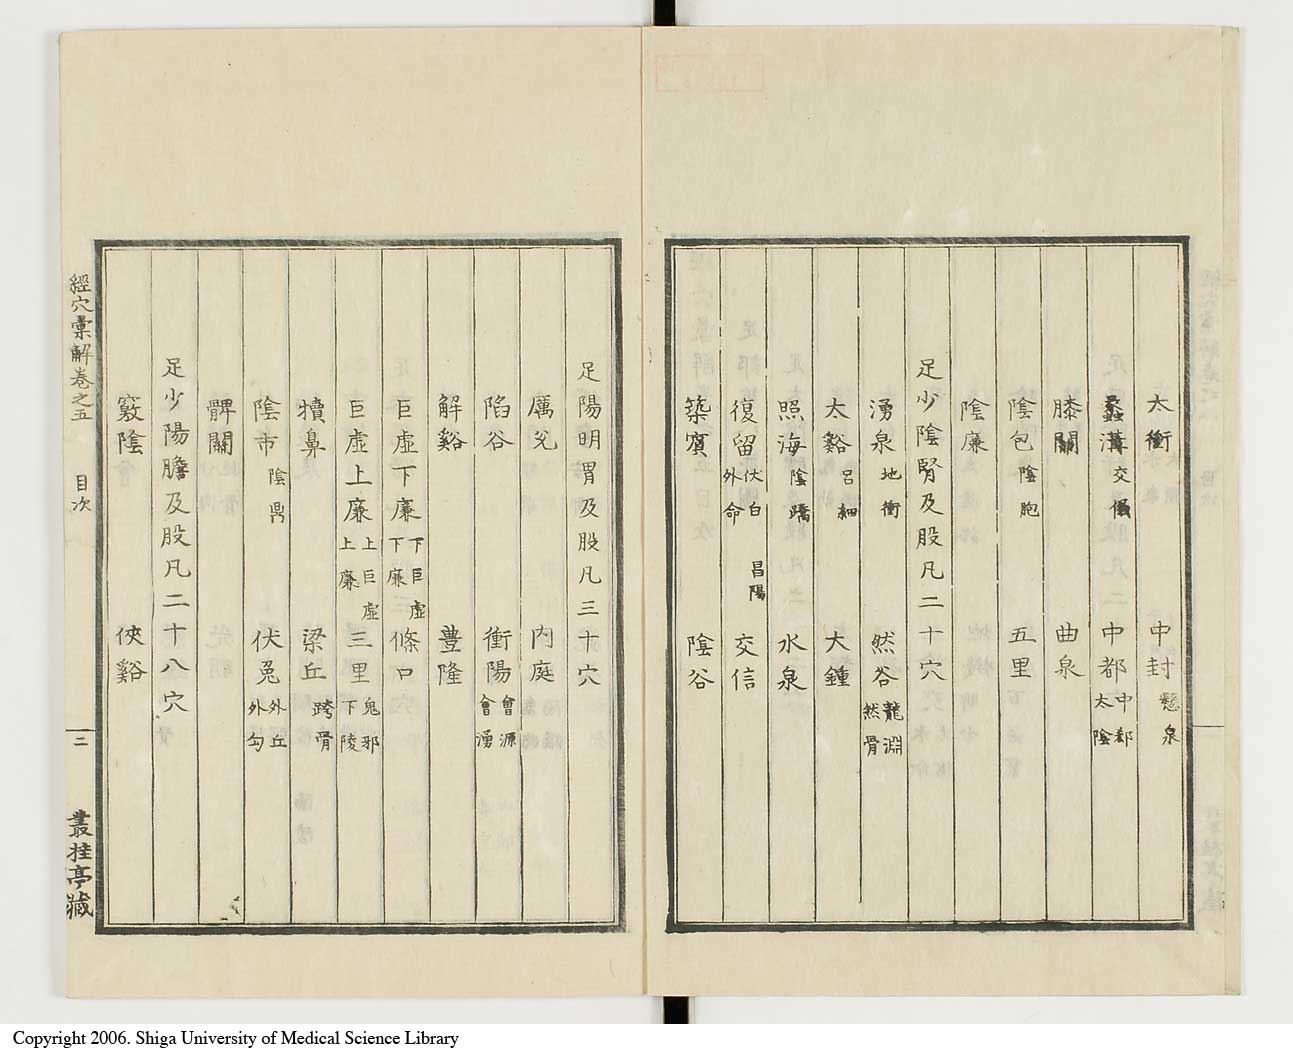 太衝　中封 懸泉
蠡溝 交儀　中都 中郄 太陰
膝關　曲泉
陰包 陰胞　五里
陰廉
足少陰腎及股凡二十穴
湧泉 地衝　然谷 龍淵 然骨
太谿 呂細　大鍾
照海 陰蹻　水泉
復留 伏白 外命 昌陽　交信
築賓　陰谷
足陽明胃及股凡三十穴
厲兌　内庭
陷谷　衝陽 會源 會湧
解谿　豊隆
巨虛下廉 下巨虛 下廉　條口
巨虛上廉 上巨虛 上廉　三里 鬼邪 下陵
犢鼻　梁丘 跨骨
陰市 陰鼎　伏兎 外丘 外勾
髀關
足少陽膽及股凡二十八穴
竅陰　俠谿
經穴彙解卷之五　目次　三　叢桂亭藏
Copyright 2006. Shiga University of Medical Science Library